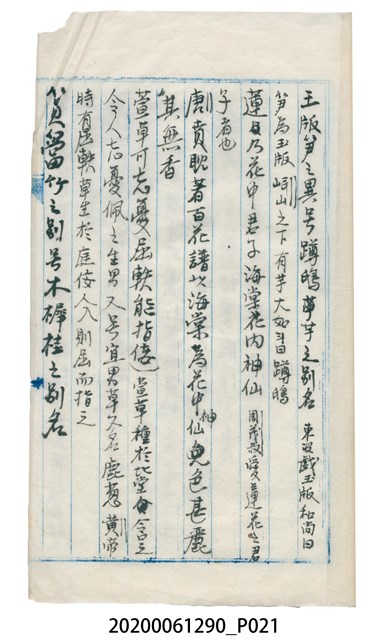 玉版笋之異号蹲鴟草芋之別名 東坡戲玉版和尚曰
笋為玉版 岷山之下有芋大如斗曰蹲鴟
蓮乃花中君子海棠花内神仙 周茂叔愛蓮花之君
子者也
唐賁耽著百花譜以海棠為花中神仙色甚麗
其無香
萱草可忘憂屈軼能指佞 萱草種於北堂 令之
令人忘憂佩之生男又号宜男草又名鹿葱 黃帝
時有屈軼草生於庭佞人入則屈而指之
篔簹竹之別号木樨桂之別名
20200061290_P021